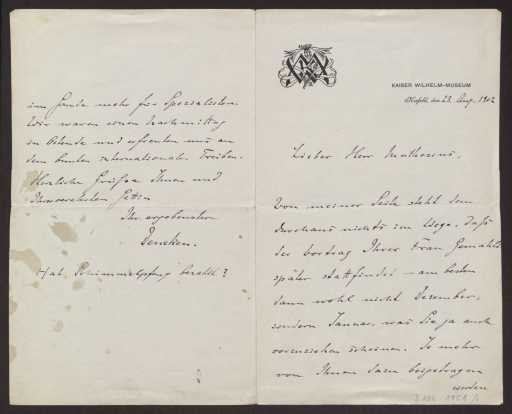 KAISER WILHELM-MUSEUM
Krefeld, den 23. Aug. 1902
Lieber Herr Muthesius,
Von meiner Seite steht dem
durchaus nichts im Wege, daß
der Vortrag Ihrer Frau Gemahlin
später stattfindet – am besten
dann wohl nicht Dezember,
sondern Januar, was Sie ja auch
vorzuziehen scheinen. Je mehr
von Ihnen dazu beigetragen
werden
im Grunde mehr für Spezialisten.
Wir waren einen Nachmittag
in Ostende und erfreuten uns an
dem bunten internationalen Treiben.
Herzliche Grüße Ihnen und
Ihrer verehrten Gattin
Ihr ergebenster
Deneken.
Hat Schimmelpfeng bezahlt?
1951